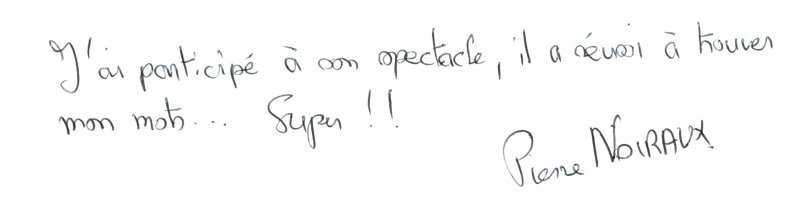 J'ai participé à son spectacle, il a réussi à trouver
mon mot... Super !!
Pierre NOIRAUX